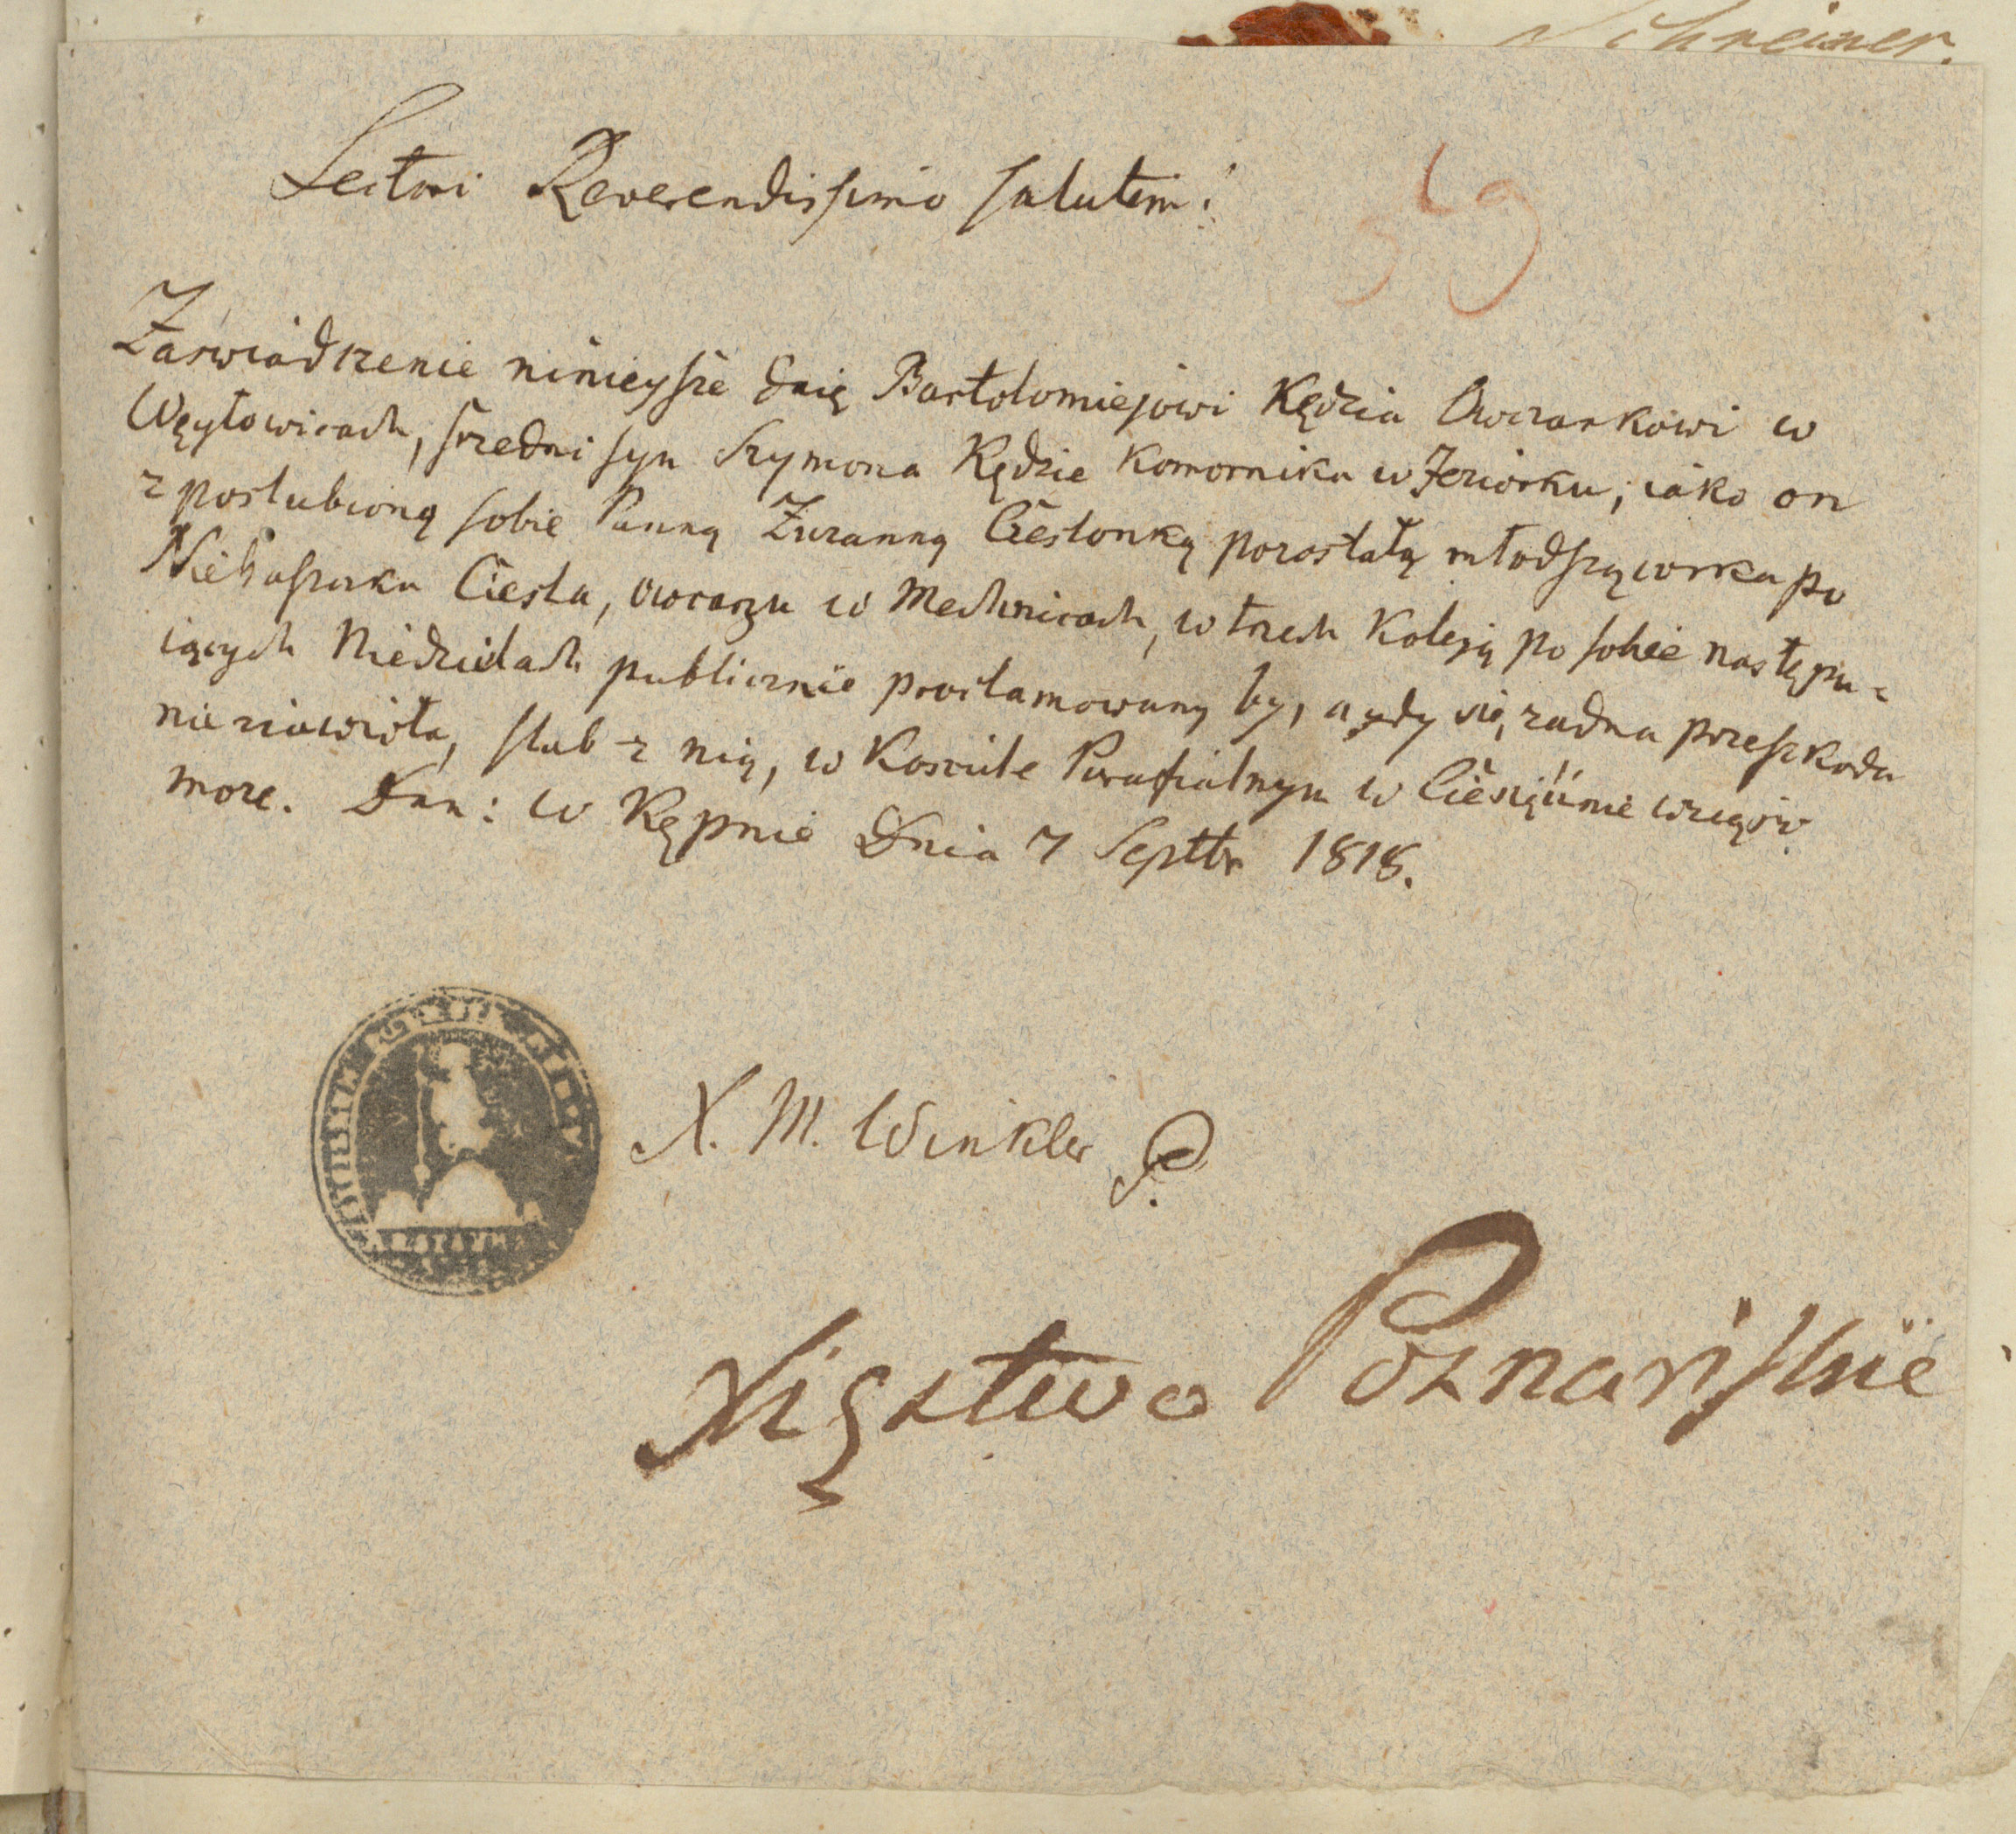 Schreiner.
Lectori Reverendissimo salutem!
59
Zaswiadczenie ninieysze daię Bartolomiejowi Kędzia Owczarkowi w
Węzłowicach, szredni syn Szymona Kędzie Komornika w Jeziorku, iako on
z poslubioną sobie Panną Zuzanną Cieslonką pozostałą młodszą corka po
Nieboszczku Ciesla, owczarzu w Mechnicach, w trzech Koleją po sobie następu-
iących Niedzielach publicznie proclamowany by, a gdy się zadna przeszkoda
nie ziawiła, slub z nią, w Kosciele Parafialnym w wziąść
moze. Dan: w Kępnie Dnia 7 Septbr 1818.
X. M. Winkler P.
Xięstwo Poznańskie